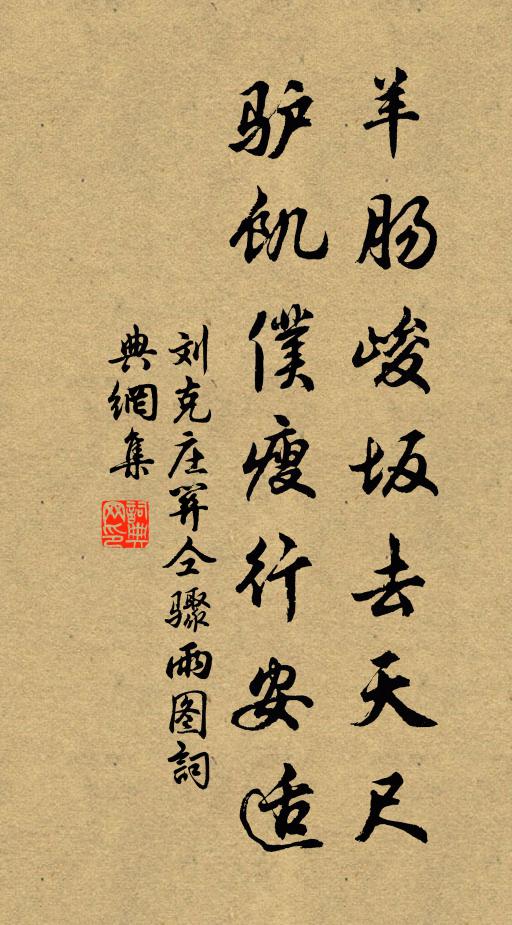 羊肠峻坂去天尺
驴飢僕瘦行安适
刘克庄关仝骤雨图詞
典網集
詞典網印